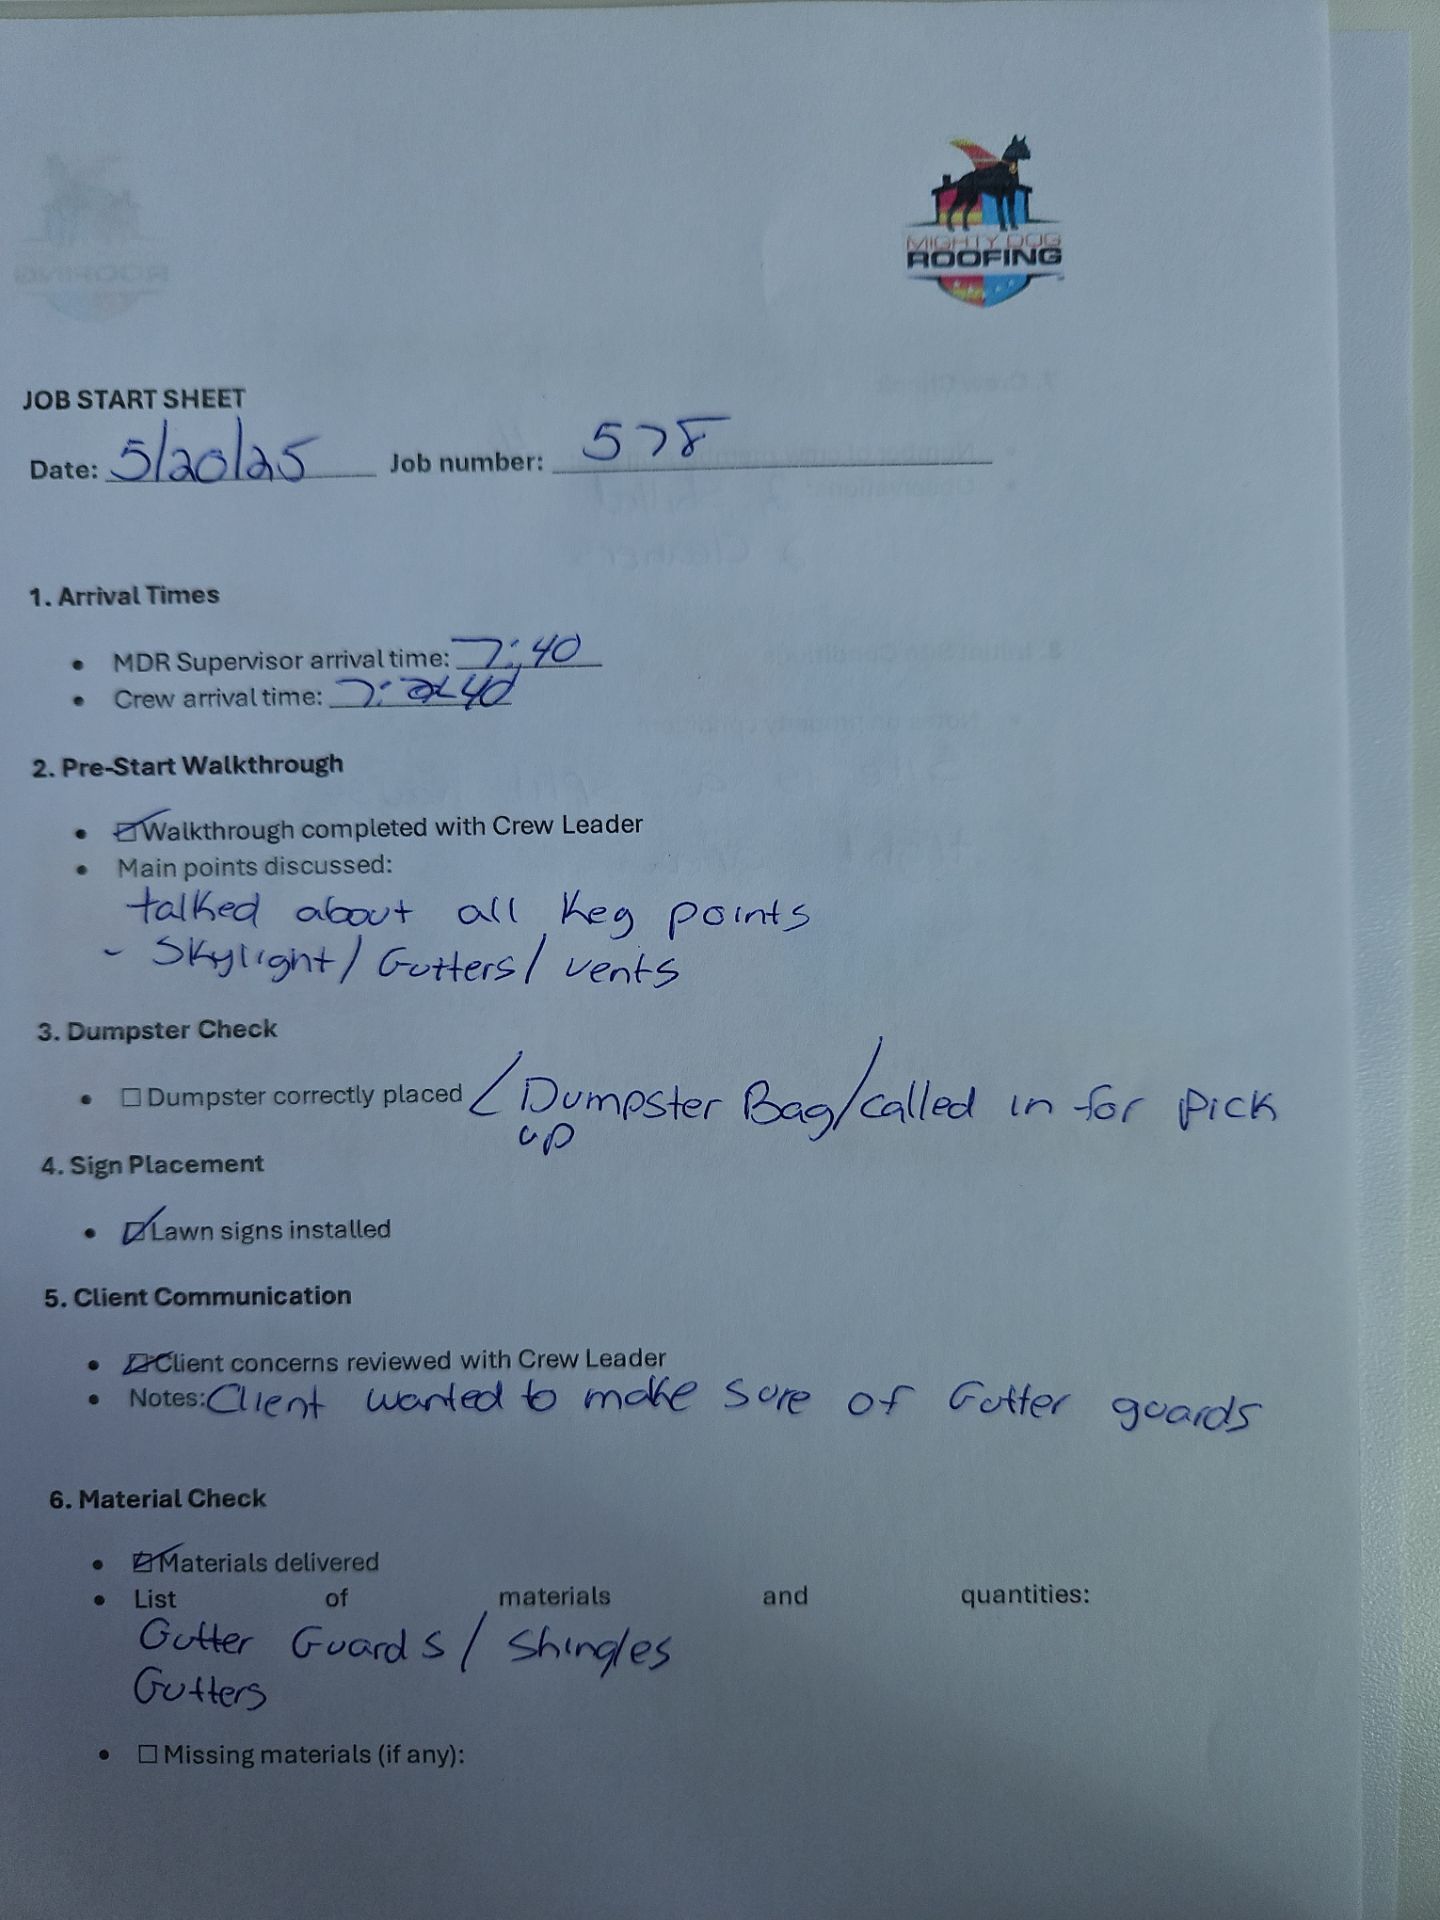 MIGHTY DOG
ROOFING
JOB START SHEET
Date: 5/20/25 Job number: 578
1. Arrival Times
• MDR Supervisor arrival time: 7:40
• Crew arrival time: 7:40
2. Pre-Start Walkthrough
• ☑ Walkthrough completed with Crew Leader
• Main points discussed:
talked about all key points
- Skylight / Gutters / vents
3. Dumpster Check
• ☐ Dumpster correctly placed / Dumpster Bag / called in for pick
up
4. Sign Placement
• ☑ Lawn signs installed
5. Client Communication
• ☑ Client concerns reviewed with Crew Leader
• Notes: Client wanted to make sure of Gutter guards
6. Material Check
• ☑ Materials delivered
• List of materials and quantities:
Gutter Guards / Shingles
Gutters
• ☐ Missing materials (if any):